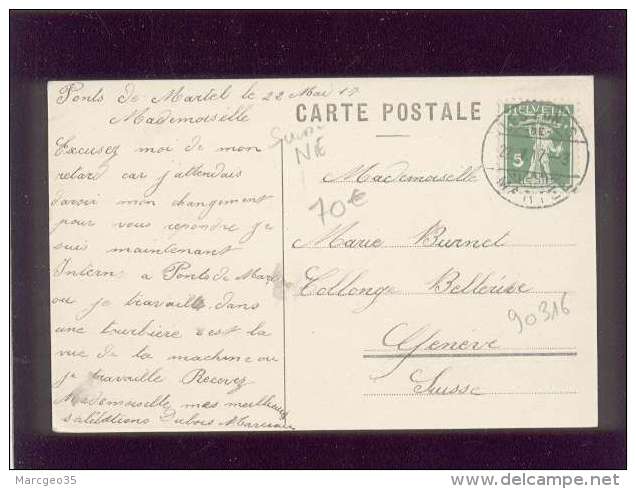 Ponts de Martel le 22 Mai 17
Mademoiselle
Excusez moi de mon
retard car j'attendais
davoir mon changement
pour vous repondre je
suis maintenant
Intern a Ponts de Mart
ou je travaille dans
une tourbière c'est la
vue de la machine ou
je travaille Recevez
Mademoiselle mes meilleurs
salutations Dubois
CARTE POSTALE
Suisse
NE
70€
HELVETIA
5
MARTEL
Mademoiselle
Marie Burnet
Collonge Bellerive
Geneve
Suisse
90316
© Marcgeo35
www.delcampe.net